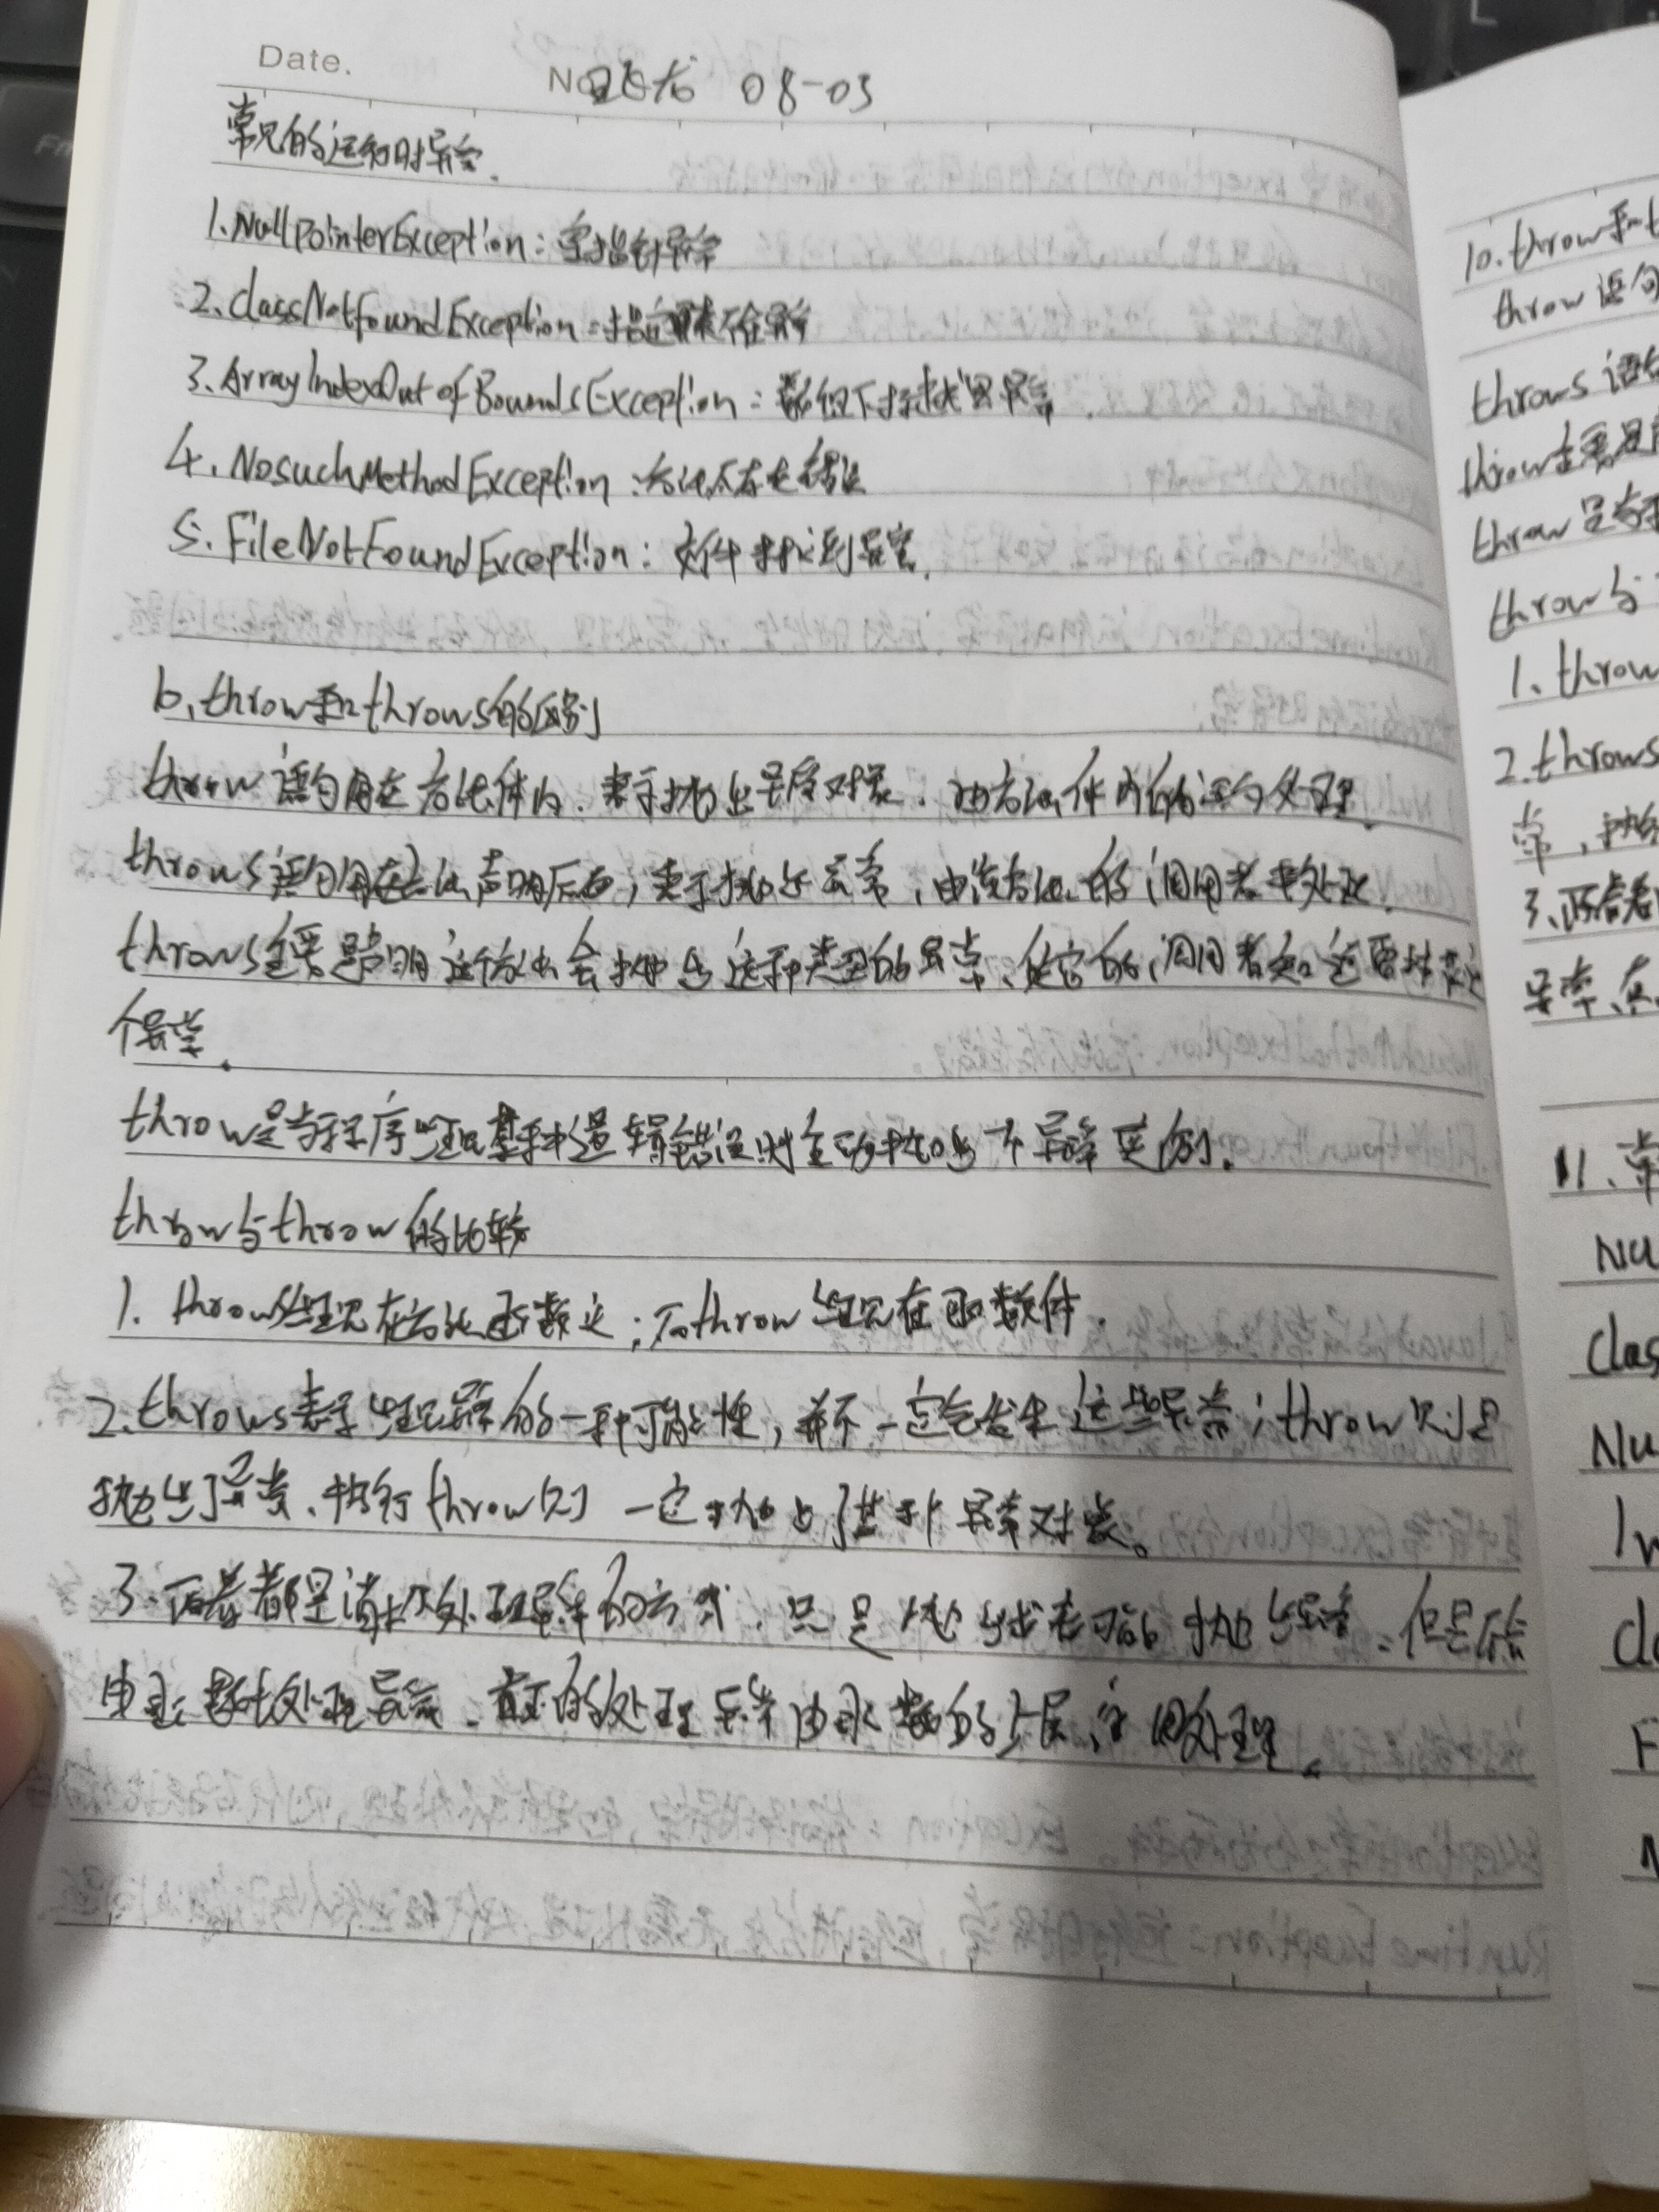 Date.
No 08-03
常见的运行时异常.
1.NullPointerException：空指针异常
2.classNotFoundException：指定类不存在
3.ArrayIndexOutOfBoundsException：数组下标越界异常
4.NosuchMethodException：方法不存在错误
5.FileNotFoundException：文件找不到异常.
6.throw和throws的区别
throw语句用在方法体内.表示抛出异常对象.由方法体内的语句处理.
throws语句用在方法声明后面,表示抛出异常,由该方法的调用者来处理.
throws主要是声明这个方法会抛出这种类型的异常、使它的调用者知道要捕获这
个异常.
throw是当程序出现某种逻辑错误时主动抛出异常实例.
throw与throw的比较
1. throws出现在方法函数头;而throw出现在函数体.
2.throws表示出现异常的一种可能性,并不一定会发生这些异常;throw则是
抛出了异常、执行throw则一定抛出了某种异常对象。
3.两者都是消极处理异常的方式.只是抛出或者可能抛出异常.但是不会
由函数处理异常.真正的处理异常由函数的上层调用处理.
10.throw和t
throw语句
throws语句
throw主要是
throw是当
throw与
1.throw
2.throws
常,抛
3.两者
异常、
11.常
Nu
Clas
Nu
In
Cl
F
N